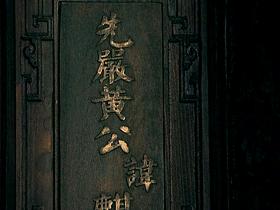 先嚴黃公
諱麒